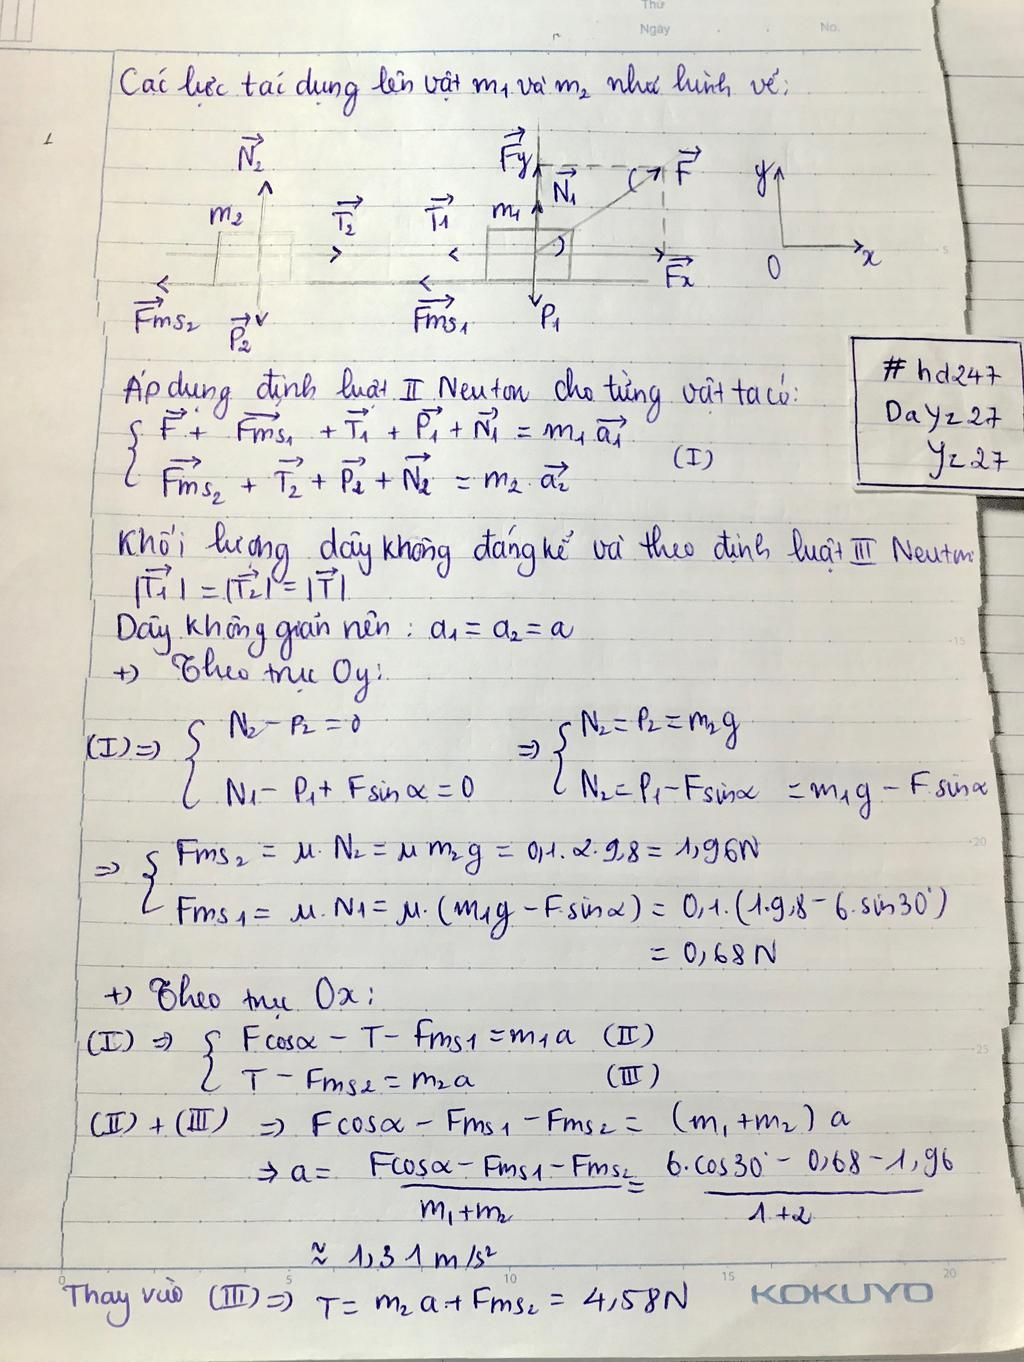 Thứ
Ngày No.
Các lực tác dụng lên vật m₁ và m₂ như hình vẽ:
1
N₂ Fy N₁ F y
m₂ T₂ T₁ m₁
Fx O x
Fms₂ P₂ Fms₁ P₁
Áp dụng định luật II Neuton cho từng vật ta có:
F + Fms₁ + T₁ + P₁ + N₁ = m₁ a₁
(I)
Fms₂ + T₂ + P₂ + N₂ = m₂ a₂
# hd247
DaYz27
Yz27
Khối lượng dây không đáng kể và theo định luật III Neuton:
|T₁| = |T₂| = |T|
Dây không giãn nên: a₁ = a₂ = a
+) Theo trục Oy:
(I) ⇒ { N₂ - P₂ = 0 ⇒ { N₂ = P₂ = m₂g
N₁ - P₁ + Fsinα = 0 N₂ = P₁ - Fsinα = m₁g - F.sinα
⇒ { Fms₂ = μ.N₂ = μm₂g = 0,1.2.9,8 = 1,96N
Fms₁ = μ.N₁ = μ.(m₁g - F.sinα) = 0,1.(1.9,8 - 6.sin30°)
= 0,68N
+) Theo trục Ox:
(I) ⇒ { Fcosα - T - Fms₁ = m₁a (II)
T - Fms₂ = m₂a (III)
(II) + (III) ⇒ Fcosα - Fms₁ - Fms₂ = (m₁+m₂) a
⇒ a = Fcosα - Fms₁ - Fms₂ = 6.cos30° - 0,68 - 1,96
m₁+m₂ 1+2
≈ 1,31m/s²
0 5 10 15 20
Thay vào (III) ⇒ T = m₂a + Fms₂ = 4,58N KOKUYO
5
15
20
25